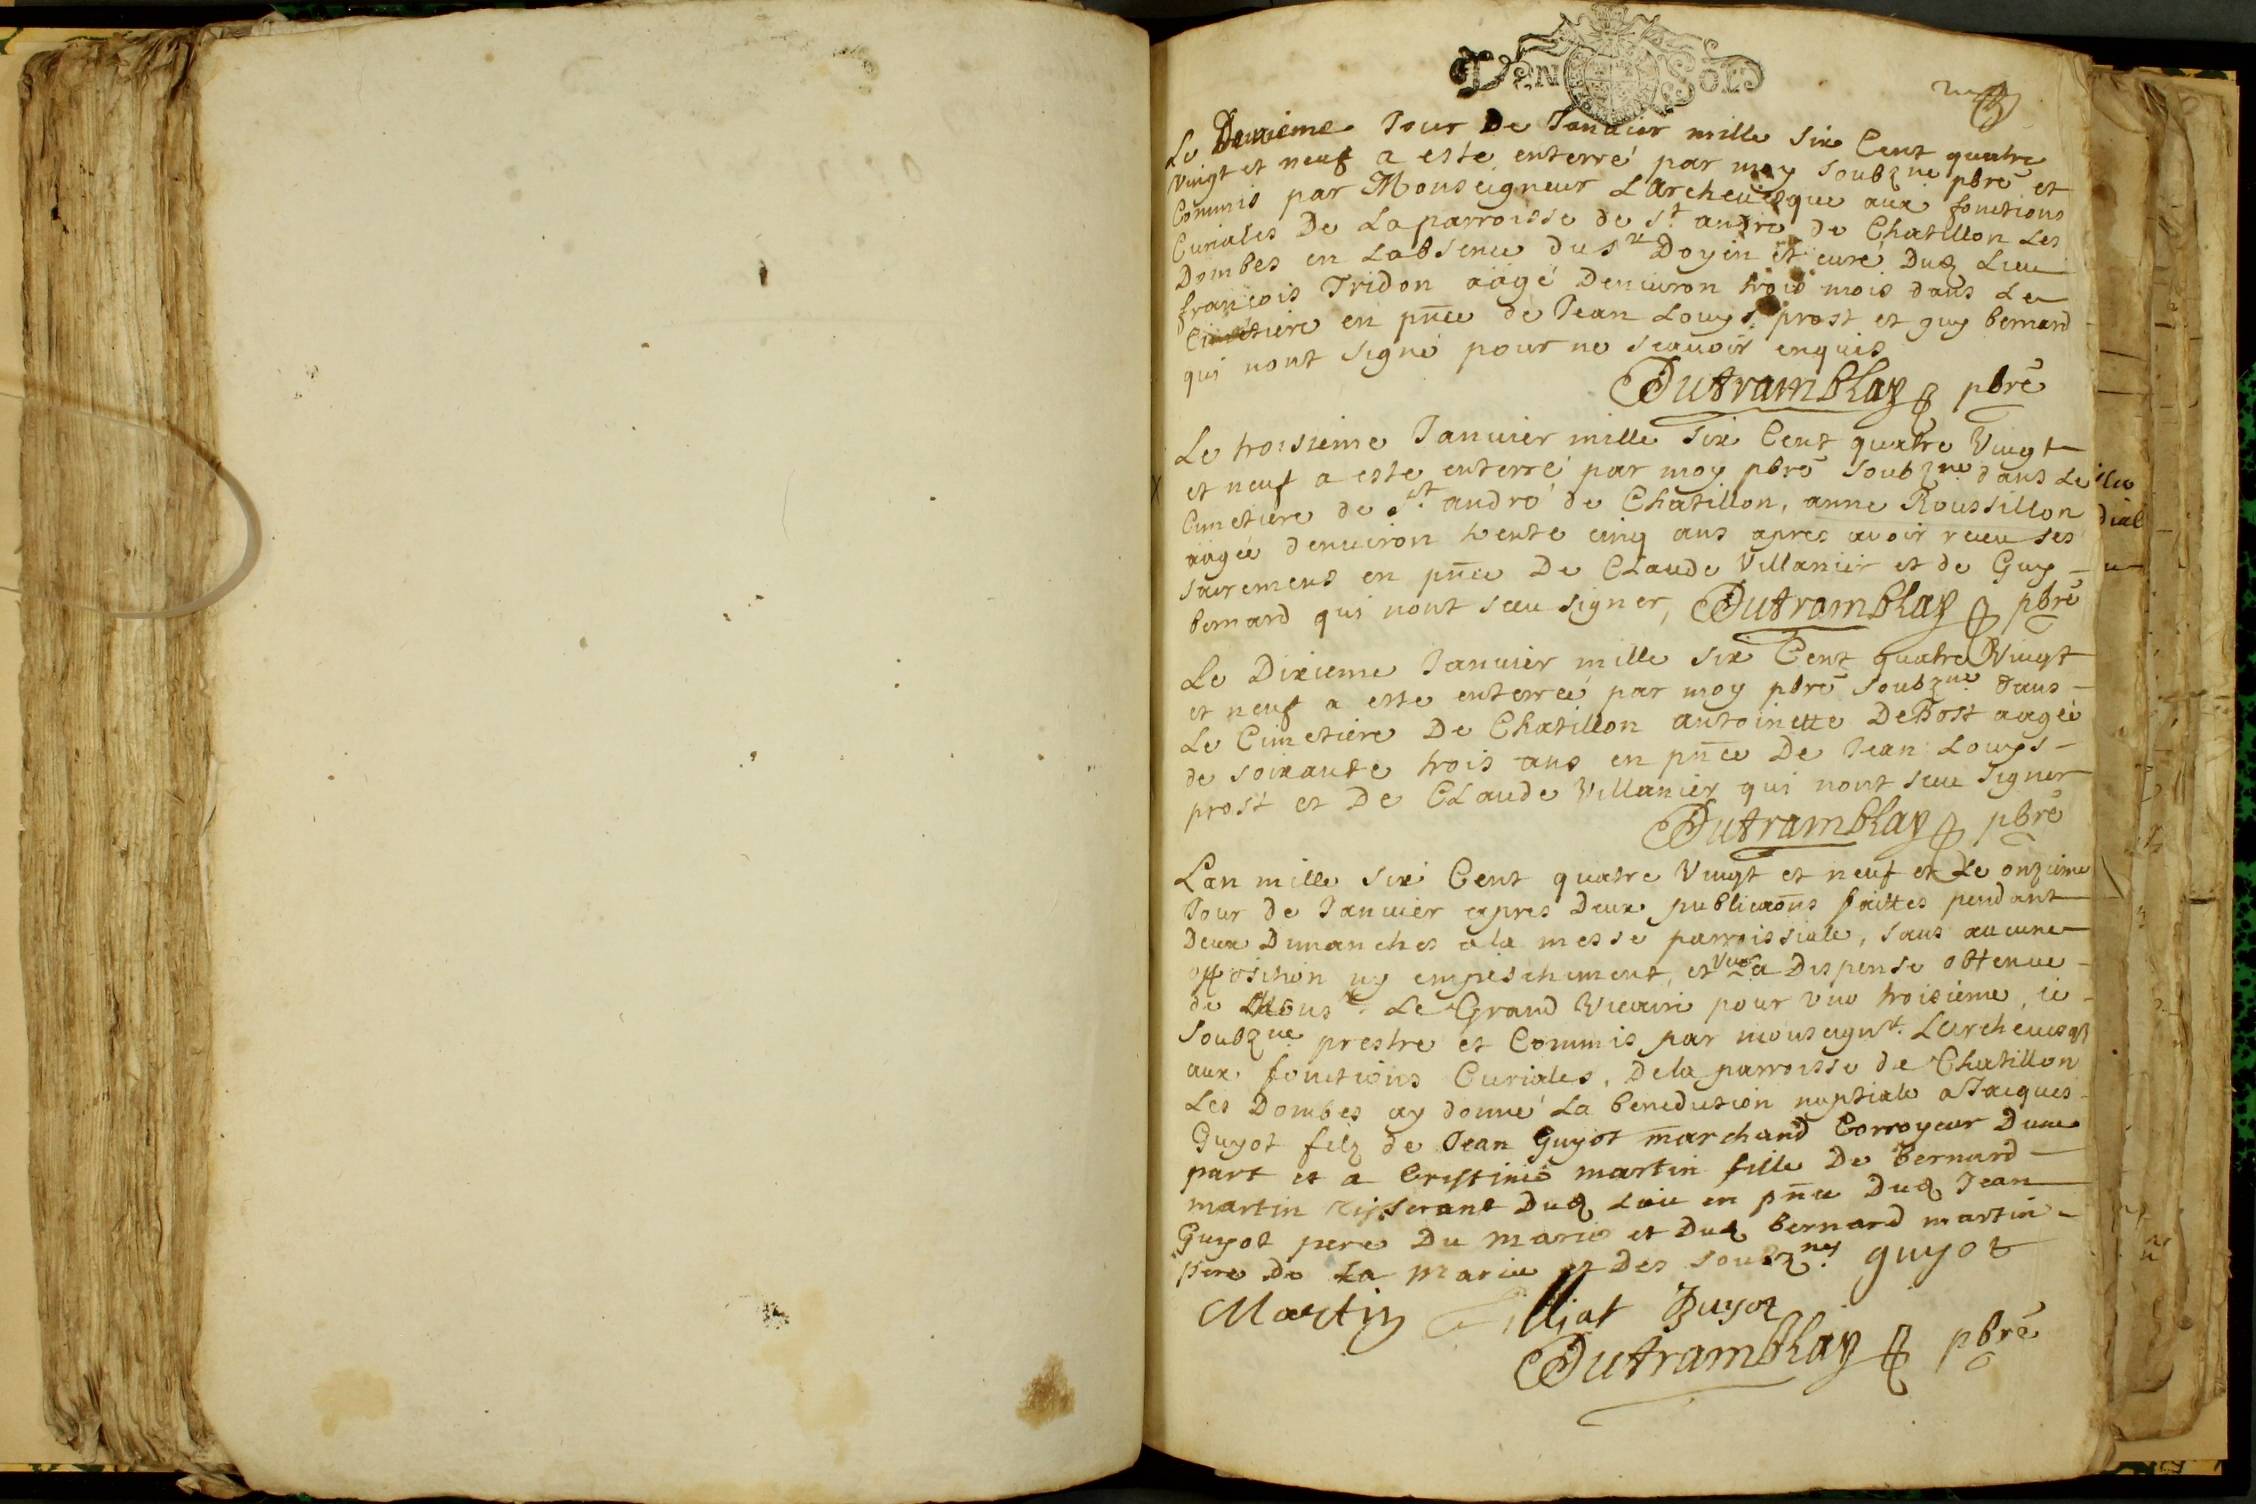 Den Sol
Le Deuxieme Jour De Januier mille Six Cent quatre
Vingt et neuf a este enterré par moy soubzné pbré et
Commis par Monseigneur LArcheuesque aux fonctions
Curiales De La parroisse de St. andre de Chatillon Les
Dombes en Labsence du sr Doyen et curé Dud Lieu
françois Tridon aâgé Denuiron trois mois dans Le
Cimetiere en pnce de Jean Louys prost et guy bernard
qui nont signé pour ne scauoir enquis
Dutramblay pbré
Le troisieme Januier mille six Cent quatre Vingt
et neuf a este enterré par moy pbré soubzné dans Le
Cimetiere de St. andré de Chatillon, anne Roussillon
aâgée denuiron trente cinq ans apres auoir receu ses
sacremens en pnce De CLaude Villanier et de Guy
bernard qui nont sceu signer, Dutramblay pbré
Le Dixieme Januier mille six Cent quatre Vingt
et neuf a este enterrée par moy pbré soubzné dans
Le Cimetiere De Chatillon antoinette DeBost aagée
de soixante trois ans en pnce De Jean Louys
prost et De CLaude Villanier qui nont sceu signer
Dutramblay pbré
Lan mille six Cent quatre Vingt et neuf et Le onzieme
Jour de Januier apres Deux publicaons faittes pendant
Deux Dimanches a la messe parroissiale, sans aucune
opposition ny empeschement, et veu La Dispense obtenue
de Monsr. Le Grand Vicaire pour vne troisieme, ie
soubzné prestre et Commis par monseignr. Larcheuesq
aux fonctions Curiales, De la parroisse de Chatillon
Les Dombes ay donné La benediction nuptiale a Jacques
Guyot filz de Jean Guyot marchand Corroyeur Dune
part et a Cristinie martin fille De Bernard
martin Tisserant Dud Lieu en pnce Dud Jean
Guyot pere Du marié et Dud bernard martin
pere De La mariée et Des soubznes guyot
Martin illiat Guyot
Dutramblay pbré